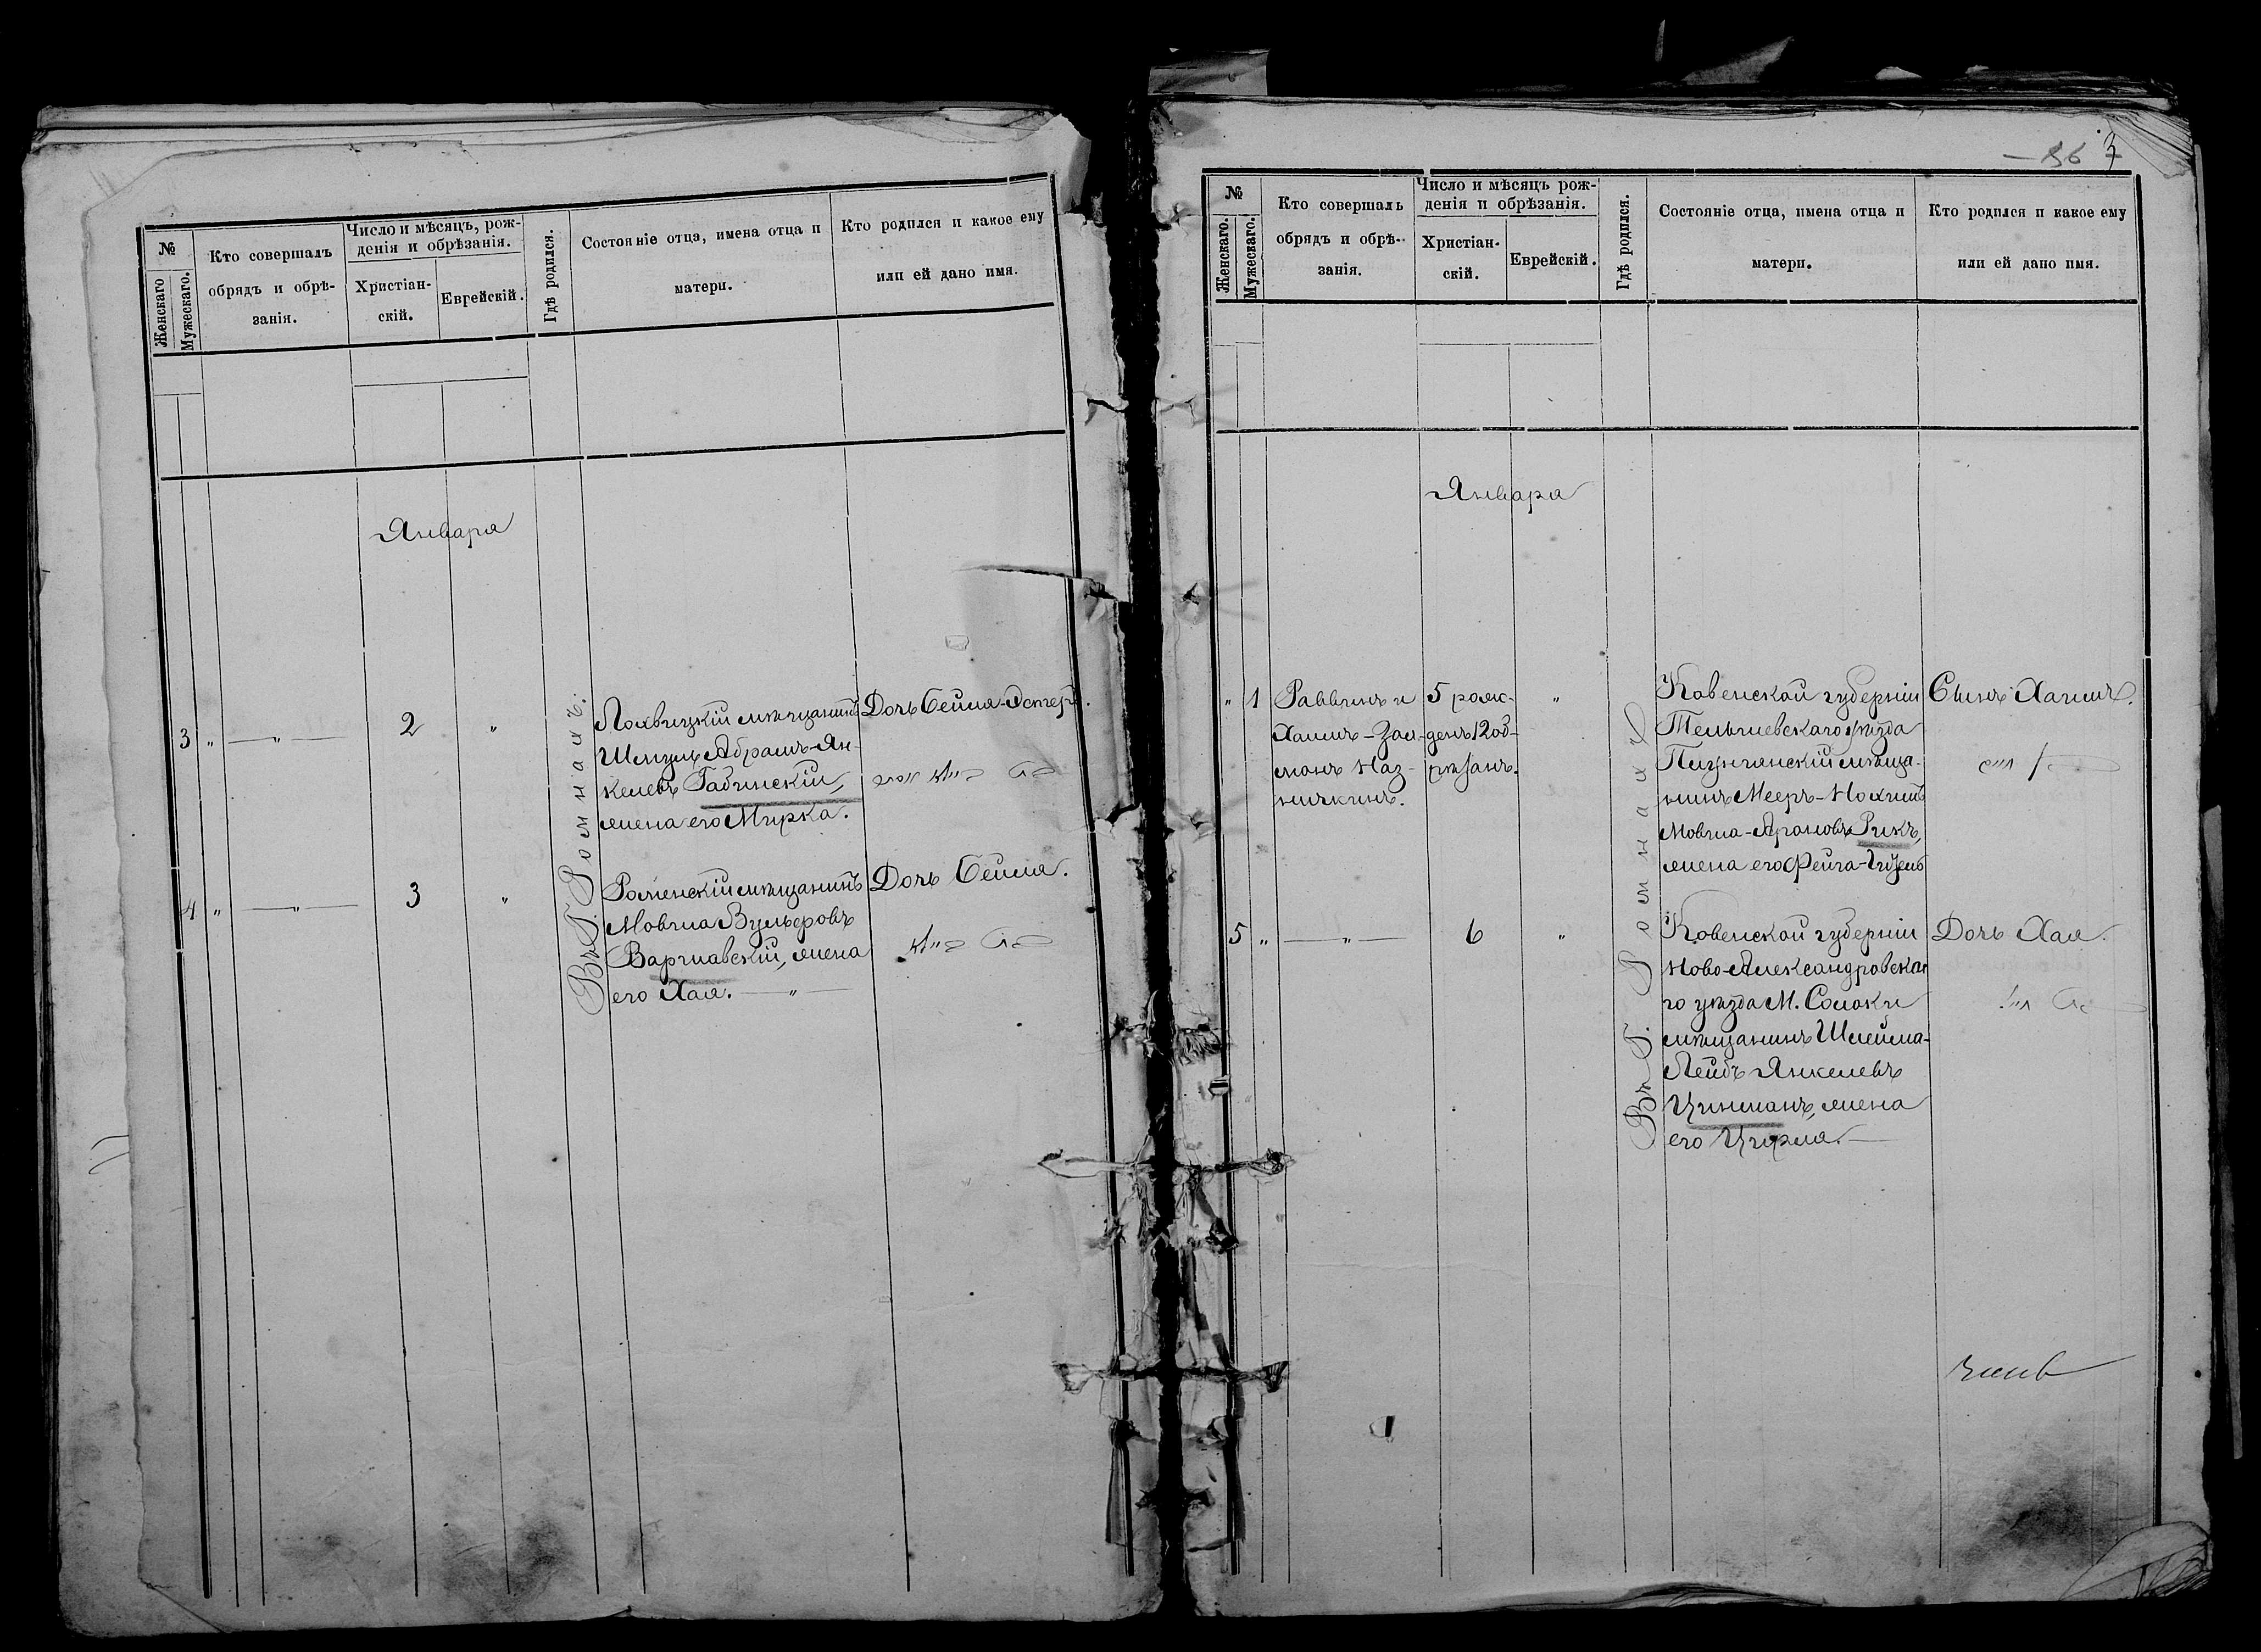 №
Женскаго
Мужескаго.
Кто совершалъ
обрядъ и обрѣ-
занія.
Число и мѣсяцъ, рож-
денія и обрѣзанія.
Христіан-
скій.
Еврейскій.
Гдѣ родился.
Состояніе отца, имена отца и
матери.
Кто родился и какое ему
или ей дано имя.
Января
3 " —"— 2 "
Въ Г. Ромнахъ.
Лохвицкій мѣщанинъ
Шмуль Абрамъ-Ян-
келевъ Габинскій,
жена его Мирка.
Дочь Бейла-Эстеръ.
4 " —"— 3 "
Роменскій мѣщанинъ
Мовша Вульфовъ
Варшавскій, жена
его Хая. —"—
Дочь Бейла.
3
№
Женскаго.
Мужескаго.
Кто совершалъ
обрядъ и обрѣ-
занія.
Число и мѣсяцъ рож-
денія и обрѣзанія.
Христіан-
скій.
Еврейскій.
Гдѣ родился.
Состояніе отца, имена отца и
матери.
Кто родился и какое ему
или ей дано имя.
Января
" 1
Раввинъ и
Хаимъ-Зал-
манъ Наз-
5 рож-
денъ 12 об-
рѣзанъ.
"
Въ Г. Ромнахъ
Ковенской губерніи
Тельшевскаго уѣзда
мѣща-
нинъ Мееръ-Нохимъ
Мовша-Ароновъ Рикъ,
жена его Фейга-
Сынъ Хаимъ.
5 " —"— 6 "
Ковенской губерніи
Ново-Александровска-
го уѣзда М. Солоки
мѣщанинъ Шлейма-
Лейбъ Янкелевъ
Цинманъ, жена
его Цирля. —
Дочь Хая.